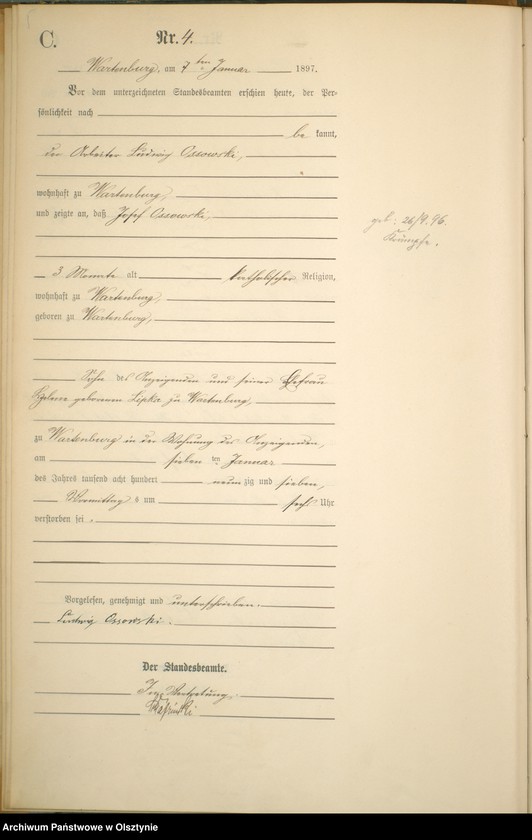 C.
Nr. 4.
Wartenburg, am 7ten Januar 1897.
Vor dem unterzeichneten Standesbeamten erschien heute, der Per-
sönlichkeit nach
be kannt,
der Arbeiter Ludwig Ossowski,
wohnhaft zu Wartenburg,
und zeigte an, daß Josef Ossowski,
3 Monate alt katholischer Religion,
wohnhaft zu Wartenburg,
geboren zu Wartenburg,
Sohn des Anzeigenden und seiner Ehefrau
Helene geborenen Lipka zu Wartenburg
zu Wartenburg in der Wohnung des Anzeigenden,
am sieben ten Januar
des Jahres tausend acht hundert neun zig und sieben,
Vormittag s um sechs Uhr
verstorben sei.
Vorgelesen, genehmigt und unterschrieben.
Ludwig Ossowski.
Der Standesbeamte.
In Vertretung.
geb: 26/9. 96.
Krämpfe.
Archiwum Państwowe w Olsztynie